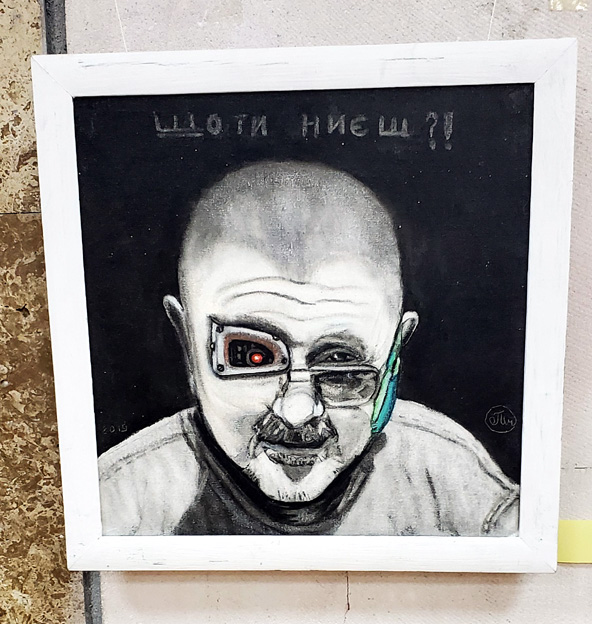 ЩОТИ НИЄШ?!
2019